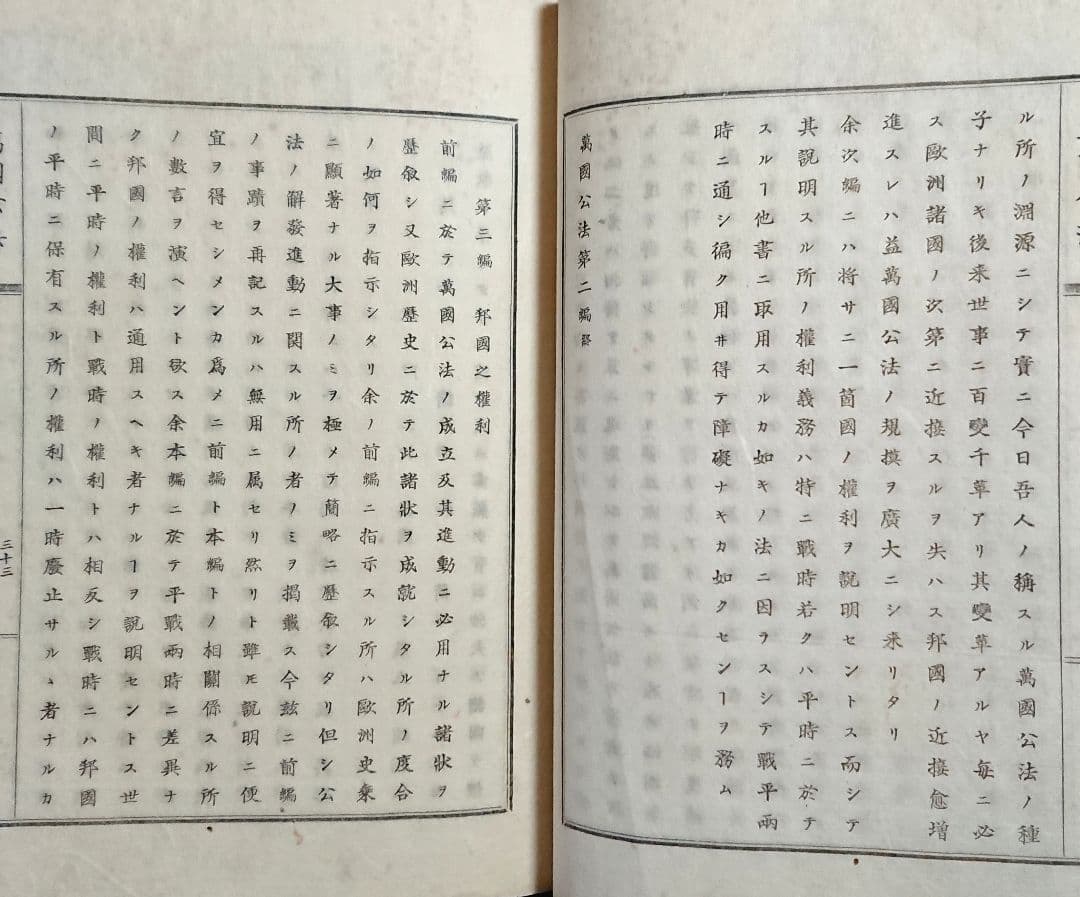 ル所ノ淵源ニシテ實ニ今日吾人ノ稱スル萬國公法ノ種
子ナリキ後来世事ニ百變千革アリ其變革アルヤ每ニ必
ス歐洲諸國ノ次第ニ近接スルヲ失ハス邦國ノ近接愈增
進スレハ益萬國公法ノ規摸ヲ廣大ニシ来リタリ
余次編ニハ将サニ一箇國ノ權利ヲ説明セントス而シテ
其説明スル所ノ權利義務ハ特ニ戰時若クハ平時ニ於テ
スルヿ他書ニ取用スルカ如キノ法ニ因ラスシテ戰平兩
時ニ通シ徧ク用井得テ障礙ナキカ如クセンヿヲ務ム
萬國公法第二編終
第三編 邦國之權利
前編ニ於テ萬國公法ノ成立及其進動ニ必用ナル諸狀ヲ
歷敘シ又歐洲歷史ニ於テ此諸狀ヲ成就シタル所ノ度合
ノ如何ヲ指示シタリ余ノ前編ニ指示スル所ハ歐洲史乗
ニ顯著ナル大事ノミヲ極メテ簡略ニ歷敘シタリ但シ公
法ノ解發進動ニ関スル所ノ者ノミヲ掲載ス今玆ニ前編
ノ事蹟ヲ再記スルハ無用ニ属セリ然リト雖モ説明ニ便
宜ヲ得セシメンカ爲メニ前編ト本編トノ相關係スル所
ノ數言ヲ演ヘント欲ス余本編ニ於テ平戰兩時ニ差異ナ
ク邦國ノ權利ハ通用スヘキ者ナルヿヲ説明セントス世
間ニ平時ノ權利ト戰時ノ權利トハ相反シ戰時ニハ邦國
ノ平時ニ保有スル所ノ權利ハ一時廢止サルヽ者ナルカ
三十三